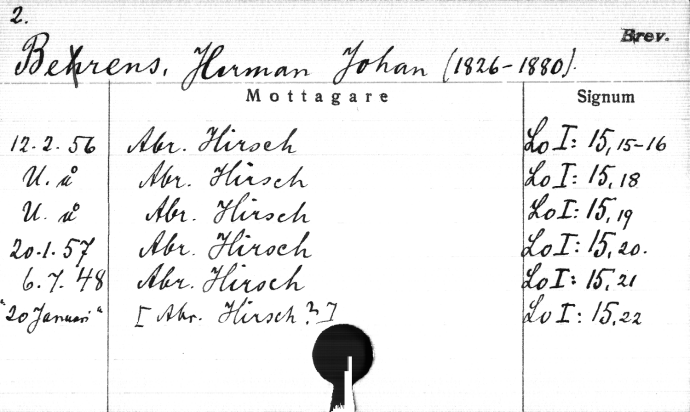 2.
Brev.
Behrens, Herman Johan (1826-1880).
Mottagare Signum
12.2.56 Abr. Hirsch Lo I: 15, 15-16
U. å Abr. Hirsch Lo I: 15, 18
U. å Abr. Hirsch Lo I: 15, 19
20.1.57 Abr. Hirsch Lo I: 15, 20.
6.7.48 Abr. Hirsch Lo I: 15, 21
"20 Januari" [Abr. Hirsch?] Lo I: 15, 22